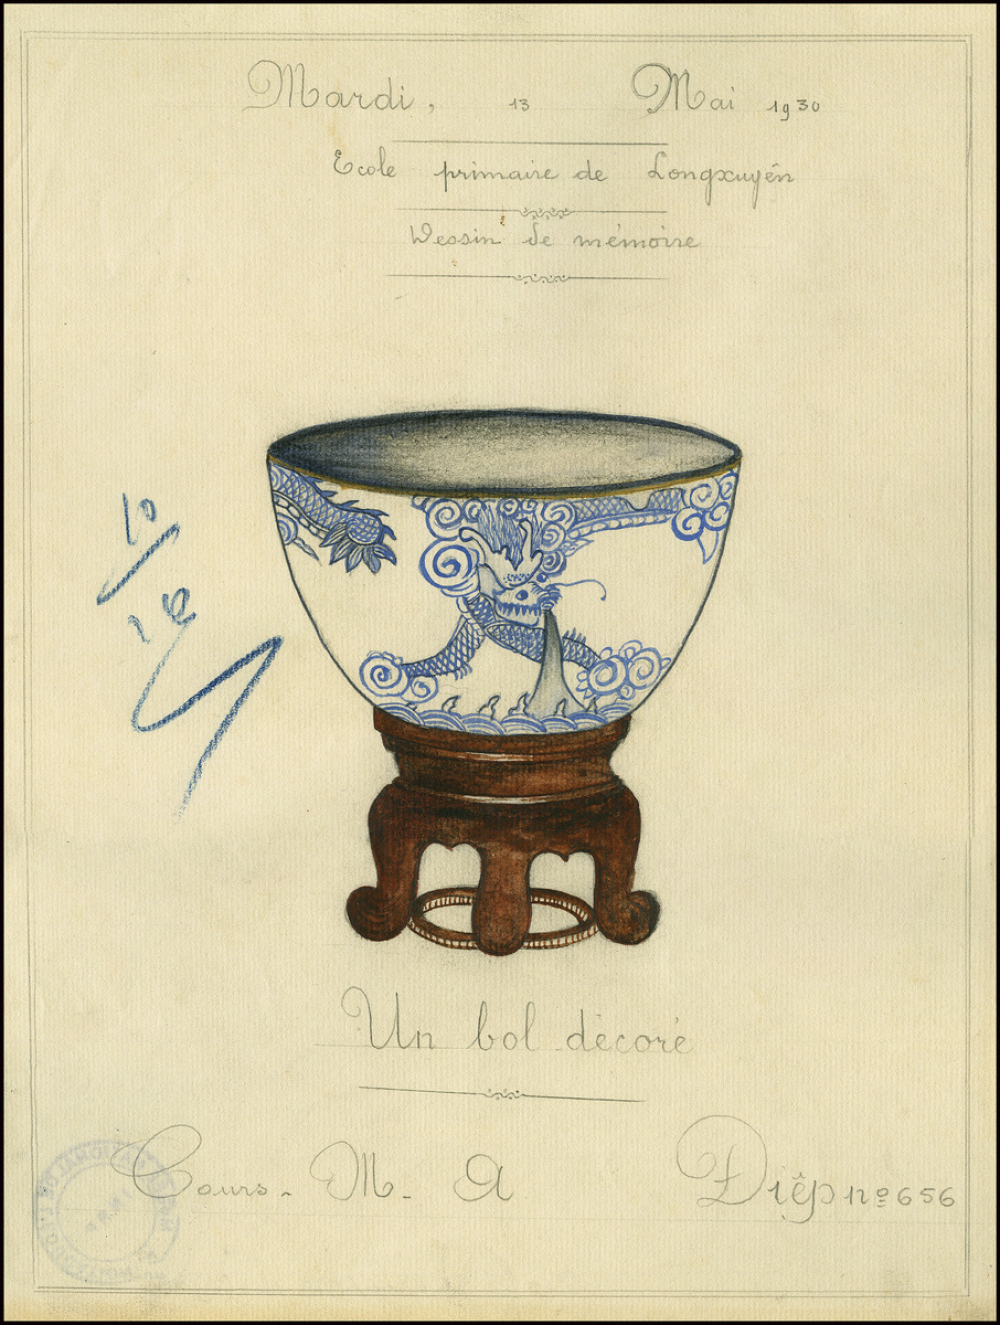 Mardi, 13 Mai 1930
Ecole primaire de Longxuyên
Dessin de mémoire
10
Un bol décoré
Cours. M. A
Điệp nº 656